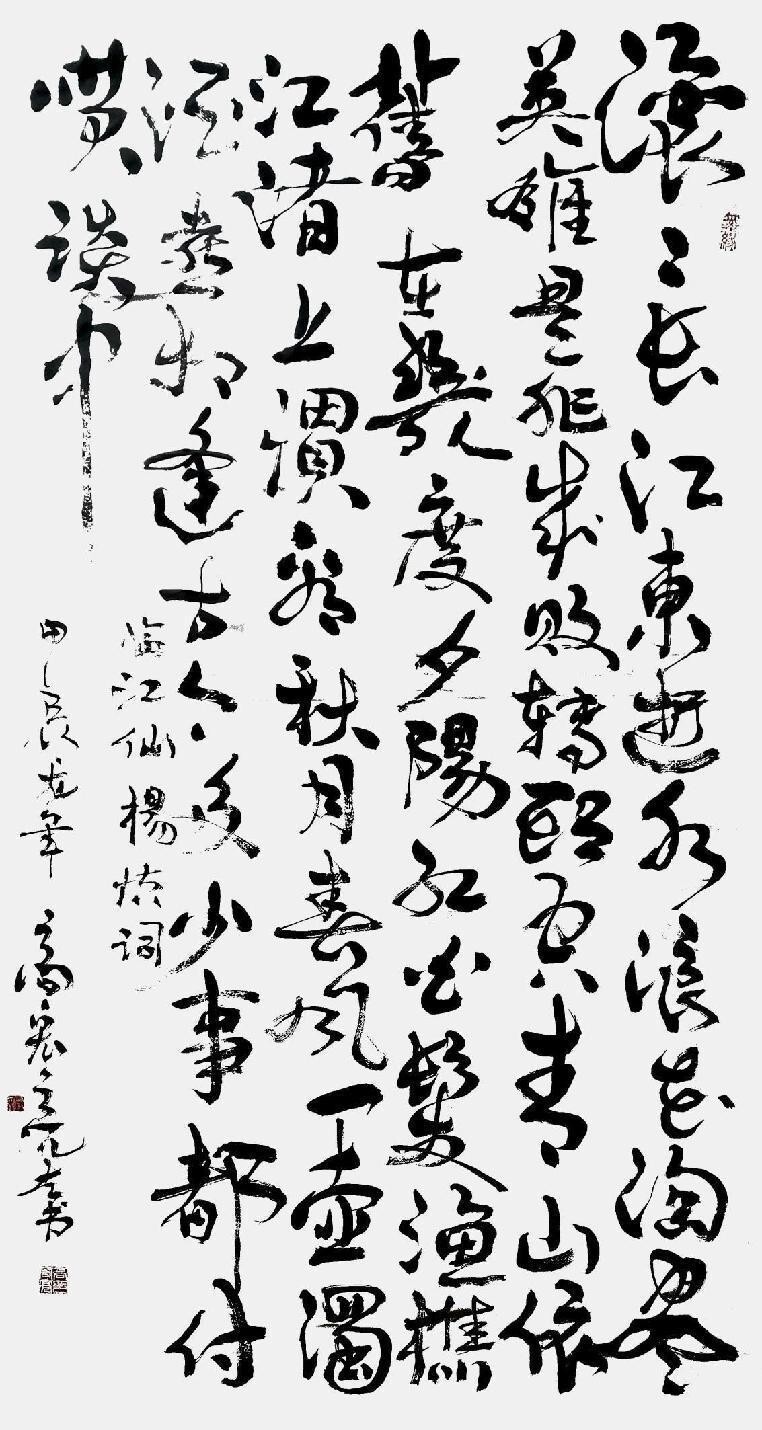 滚〻長江東逝水浪花淘盡
英雄是非成敗轉頭空青山依
舊在幾度夕陽紅白髮漁樵
江渚上慣看秋月春風一壺濁
酒喜相逢古今多少事都付
笑談中
临江仙楊慎詞
甲辰龙年